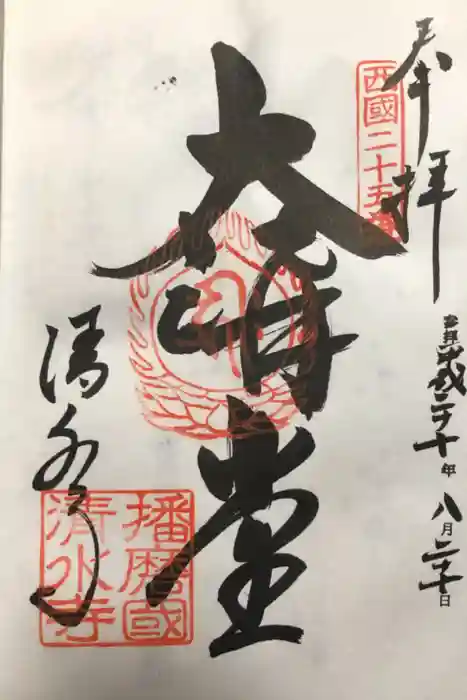 奉拝
西國二十五番
平成三十年八月二十日
大講堂
清水寺
播磨國
清水寺